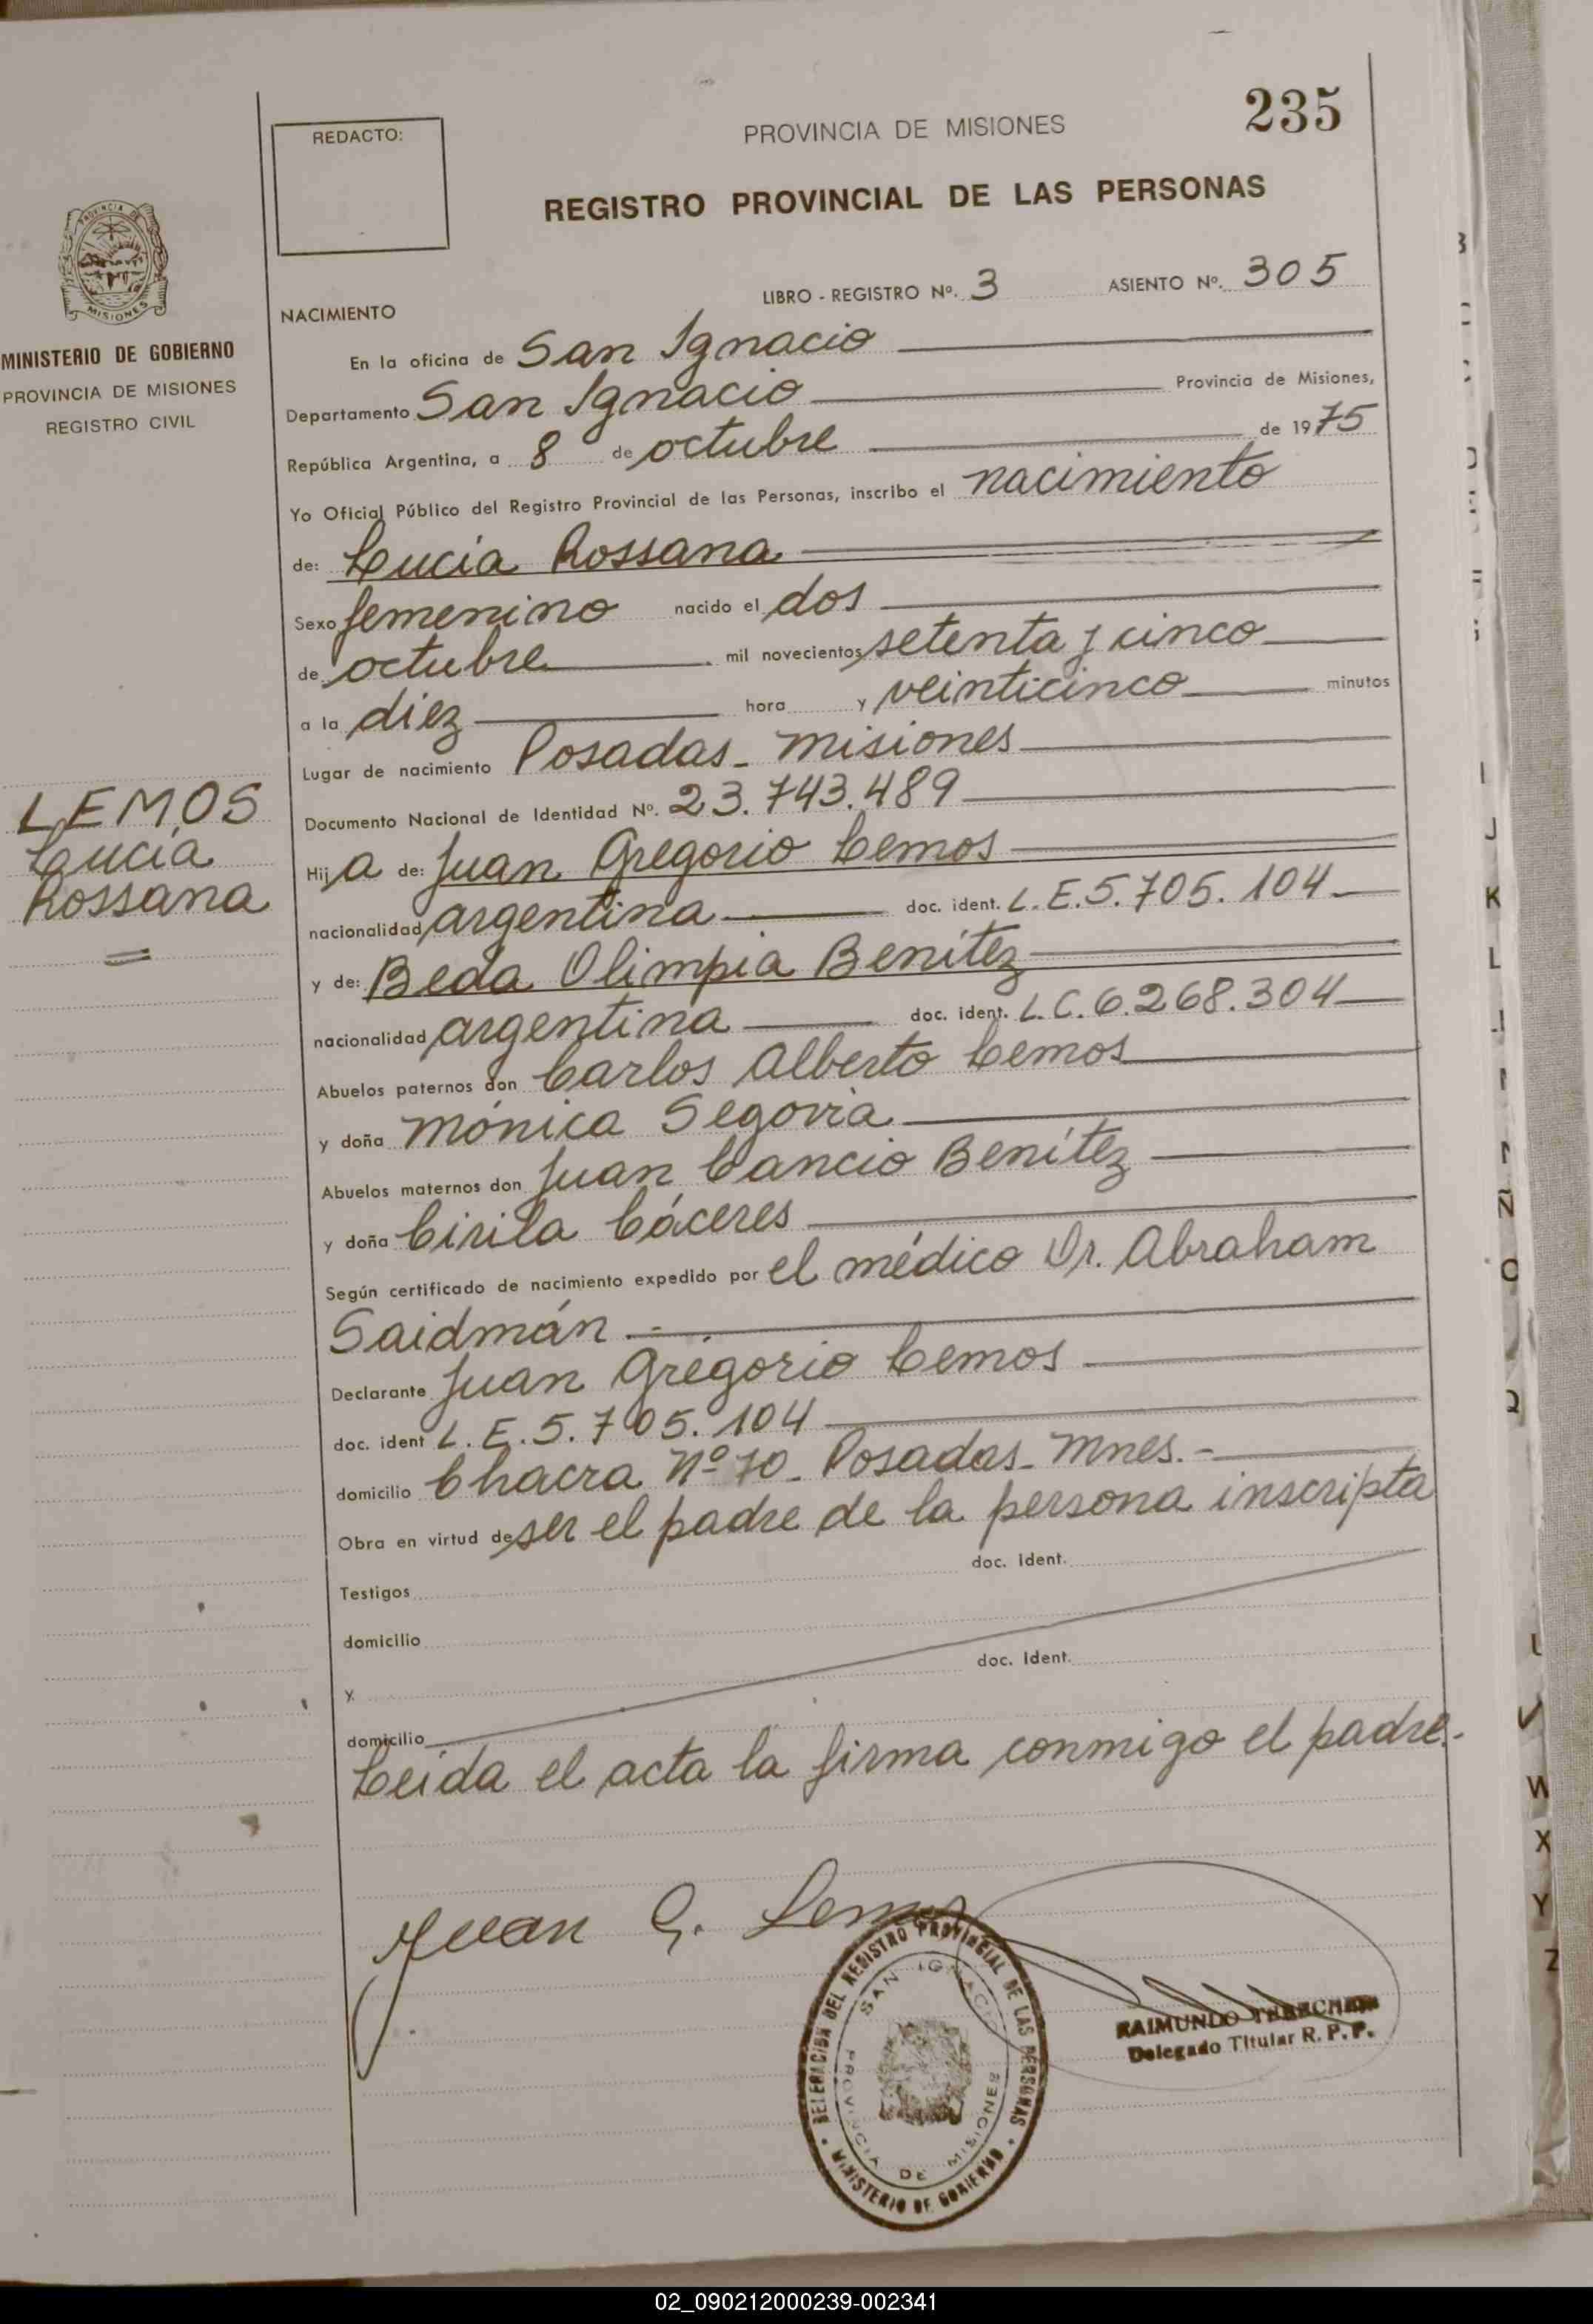 235
REDACTO:
PROVINCIA DE MISIONES
REGISTRO PROVINCIAL DE LAS PERSONAS
MINISTERIO DE GOBIERNO
PROVINCIA DE MISIONES
REGISTRO CIVIL
LIBRO - REGISTRO Nº. 3 ASIENTO Nº. 305
NACIMIENTO
En la oficina de San Ignacio
Departamento San Ignacio Provincia de Misiones,
República Argentina, a 8 de octubre de 1975
Yo Oficial Público del Registro Provincial de las Personas, inscribo el nacimiento
de: Lucía Rossana
Sexo femenino nacido el dos
de octubre mil novecientos setenta y cinco
a la diez hora y veinticinco minutos
Lugar de nacimiento Posadas - Misiones
Documento Nacional de Identidad Nº. 23.743.489
LEMOS
Lucía
Rossana
Hija de: Juan Gregorio Lemos
nacionalidad argentina doc. ident. L.E.5.705.104
y de: Beda Olimpia Benítez
nacionalidad argentina doc. ident. L.C.6.268.304
Abuelos paternos don Carlos Alberto Lemos
y doña Mónica Segovia
Abuelos maternos don Juan Cancio Benítez
y doña Cirila Cáceres
Según certificado de nacimiento expedido por el médico Dr. Abraham
Saidmán.-
Declarante Juan Gregorio Lemos
doc. ident L.E.5.705.104
domicilio Chacra Nº 70 - Posadas - Mnes.-
Obra en virtud de ser el padre de la persona inscripta
Testigos doc. Ident.
domicilio
y doc. Ident.
domicilio
Leída el acta la firma conmigo el padre.-
Juan G. Lemos
DELEGACION DEL REGISTRO PROVINCIAL DE LAS PERSONAS
SAN IGNACIO
PROVINCIA DE MISIONES
MINISTERIO DE GOBIERNO
RAIMUNDO
Delegado Titular R. P. P.
02_090212000239-002341